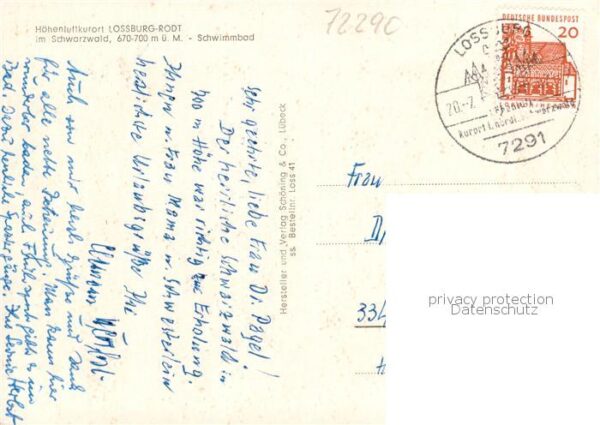 Höhenluftkurort LOSSBURG-RODT
im Schwarzwald, 670-700 m ü. M. - Schwimmbad
7229C
DEUTSCHE BUNDESPOST
20
LOSSBURG
20.-7.
Kurort i. nördl.
7291
Sehr geehrte, liebe Frau Dr. Dagel!
Der herrliche Schwarzwald in
700 m Höhe war richtig zur Erholung.
Ihnen u. Frau Mama u. Schwesterlein
herzliche Urlaubsgrüße Ihr
Auch von mir herzl. Grüße und Dank
für alle nette Betreuung! Man kann hier
wunderbar baden auch
Bad. Dazu herrliche Spaziergänge. Ihre Herbst
Hersteller und Verlag Schöning & Co., Lübeck
ss. Bestellnr. Loss 41
Frau
D
334
privacy protection
Datenschutz